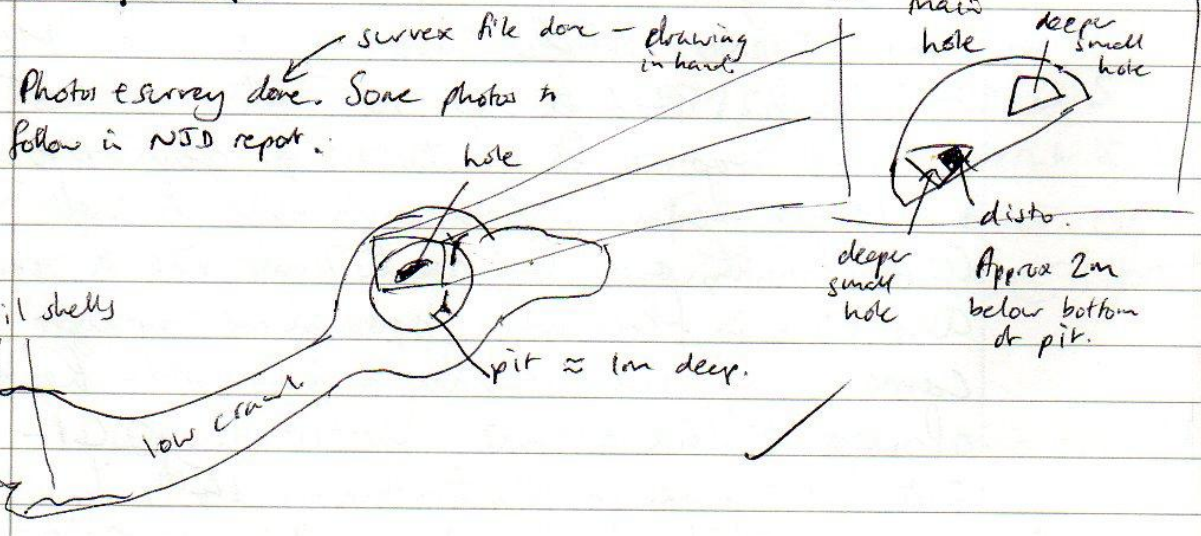 survex file done - drawing
in hand
Photos & survey done. Some photos to
follow in NJD report.
hole
main
hole
deeper
small
hole
disto.
deeper
small
hole
Approx 2m
below bottom
of pit.
shells
pit ≈ 1m deep.
low crawl